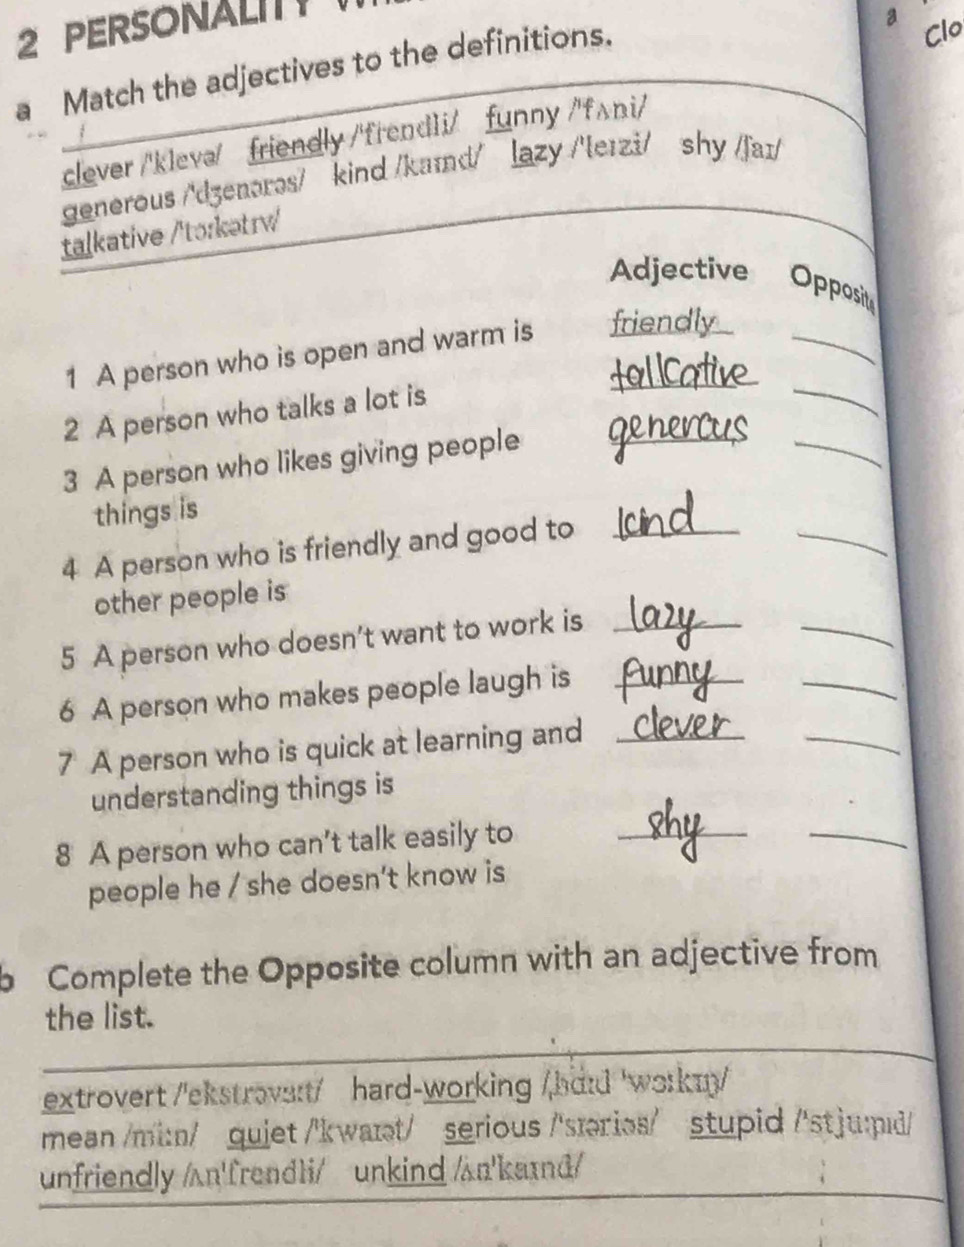 2 PERSONALITY
a Match the adjectives to the definitions.
clever /ˈklevə/ friendly /ˈfrendli/ funny /ˈfʌni/
generous /ˈdʒenərəs/ kind /kaɪnd/ lazy /ˈleɪzi/ shy /ʃaɪ/
talkative /ˈtɔːkətɪv/
Adjective Opposite
1 A person who is open and warm is friendly
2 A person who talks a lot is talkative
3 A person who likes giving people generous
things is
4 A person who is friendly and good to kind
other people is
5 A person who doesn't want to work is lazy
6 A person who makes people laugh is funny
7 A person who is quick at learning and clever
understanding things is
8 A person who can't talk easily to shy
people he / she doesn't know is
b Complete the Opposite column with an adjective from
the list.
extrovert /ˈekstrəvɜːt/ hard-working /ˌhɑːd ˈwɜːkɪŋ/
mean /miːn/ quiet /ˈkwaɪət/ serious /ˈsɪəriəs/ stupid /ˈstjuːpɪd/
unfriendly /ʌnˈfrendli/ unkind /ʌnˈkaɪnd/
a
Clo